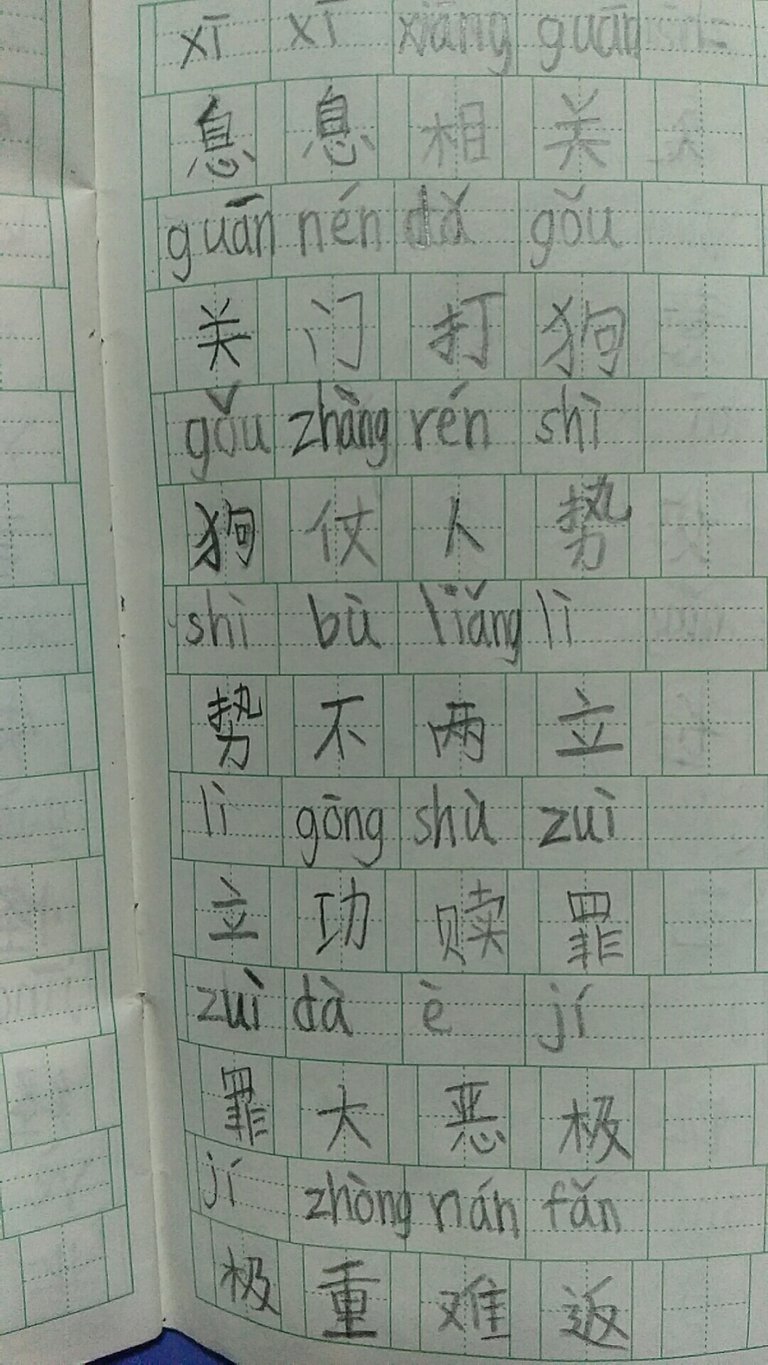 xī xī xiāng guān
息息相关
guān nén dǎ gǒu
关门打狗
gǒu zhàng rén shì
狗仗人势
shì bù liǎng lì
势不两立
lì gōng shù zuì
立功赎罪
zuì dà è jí
罪大恶极
jí zhòng nán fǎn
极重难返